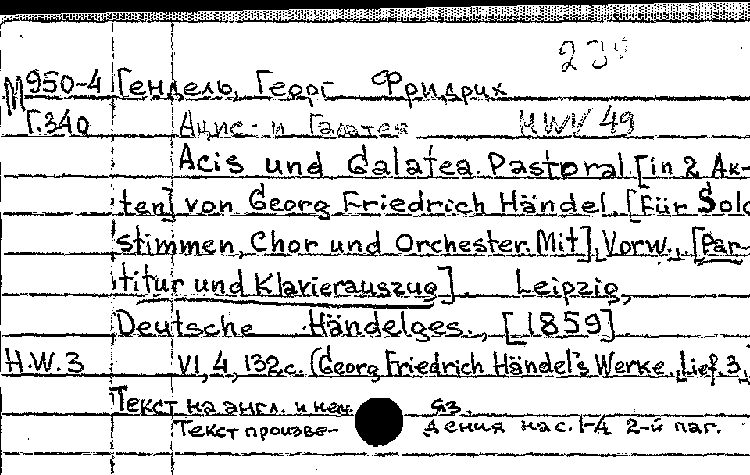 230
М950-4 Гендель, Георг Фридрих
Г.340 Ацис и Галатея HWV 49
Acis und Galatea. Pastoral [in 2 Ak-
ten] von Georg Friedrich Händel. [Für Solo
stimmen, Chor und Orchester. Mit] Vorw., [Par-
titur und Klavierauszug]. Leipzig,
Deutsche Händelges., [1859]
H.W.3 VI, 4, 132 с. (Georg Friedrich Händel's Werke. Lief. 3,
Текст на англ. и нем. яз.
Текст произве- дения на с. 1-4 2-й паг.